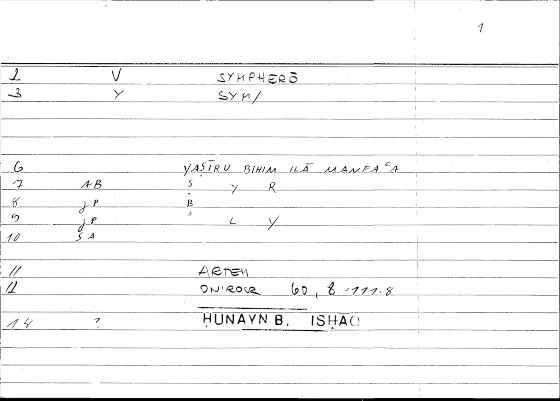 1
1 V SYMPHERŌ
3 Y SYM/
6 YAṢĪRU BIHIM ILĀ MANFAʿA
7 AB Ṣ Y R
8 JP B
9 JP L Y
10 SA
11 ARTEM
12 ONIROCR 60, 8 -111.8
14 ? ḤUNAYN B. ISḤAQ